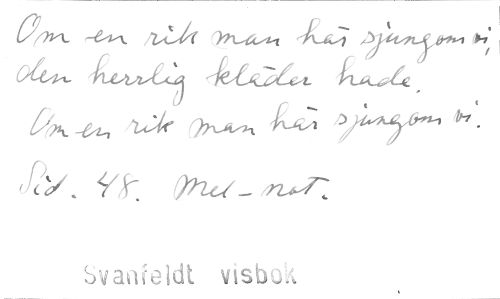 Om en rik man här sjungom vi,
den herrlig kläder hade.
Om en rik man här sjungom vi.
Sid. 48. Mel-not.
Svanfeldt visbok